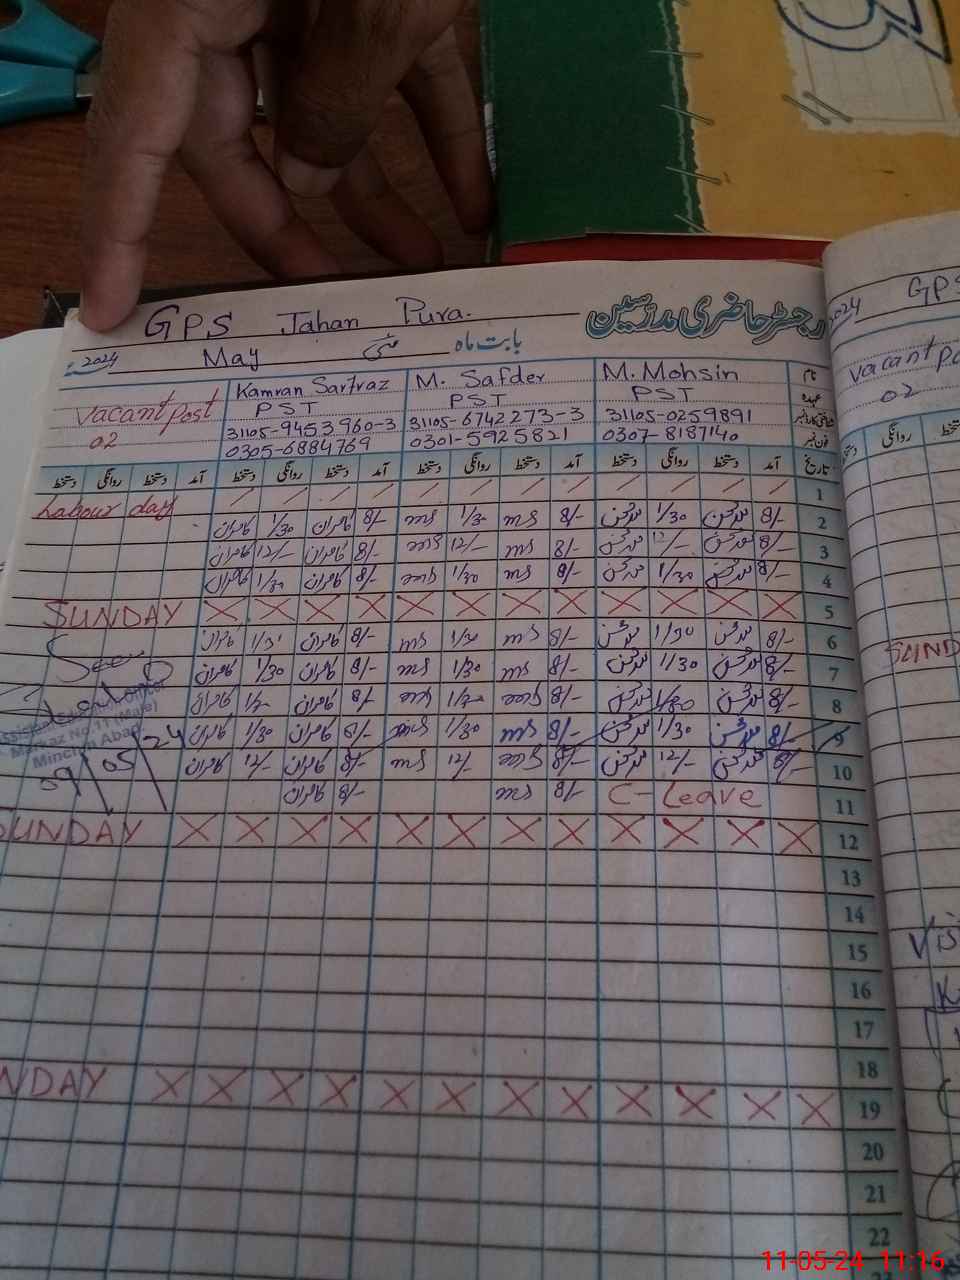 GPS Jahan Pura.
رجسٹر حاضری مدرّسین
2024 May مئی بابت ماہ
Vacant Post 02
Kamran Sarfraz
PST
31105-9453960-3
0305-6884769
M. Safder
PST
31105-6742273-3
0301-5925821
M. Mohsin
PST
31105-0259891
0307-8187140
نام
عہدہ
شناختی کارڈ نمبر
فون نمبر
تاریخ آمد دستخط روانگی دستخط آمد دستخط روانگی دستخط آمد دستخط روانگی دستخط آمد دستخط روانگی دستخط
1 Labour day
2 8/- 1/30 8/- ms 1/30 ms 8/- کامران 1/30 کامران
3 8/- 12/- 8/- ms 12/- 8/- کامران 12/- کامران
4 8/- 1/30 8/- ms 1/30 8/- کامران 1/30 کامران
5 SUNDAY X X X X X X X X X X X X
6 8/- 1/30 8/- ms 1/30 ms 8/- کامران کامران
7 8/- 1/30 8/- ms 1/30 ms 8/- کامران 1/30 کامران
8 8/- 1/30 8/- 8/- کامران کامران
9 8/- 1/30 8/- ms 1/30 ms 8/- کامران 1/30 کامران
10 8/- 12/- 8/- 12/- ms 8/- کامران 12/- کامران
11 C-Leave 8/- ms 8/- کامران
12 SUNDAY X X X X X X X X X X X X
13
14
15
16
17
18
19 NDAY X X X X X X X X X X X X
20
21
22
Seen
Markaz No. 11 (Male)
Minchin Abad
09/05/24
2024 GPS
Vacant Po
02
روانگی
SUND
Vis
11-05-24 11:16